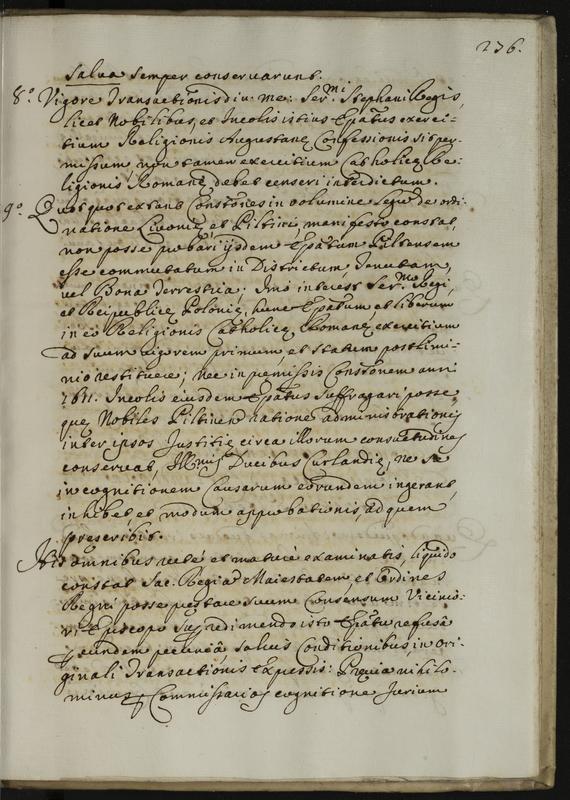 236.
Salva semper conservarunt.
8.º Vigore Transactionis div: me: Ser.mi Stephani Regis,
licet Nobilibus, et Incolis istius Epatus exerci-
tium Religionis Augustanę Confessionis sit per-
missum, non tamen exercitium Catholicę Re-
ligionis Romanę debet censeri interdictum.
9.º Quotquot extant Constönes in volumine Legũ de ordi-
natione Livonię et Piltini, manifeste constat,
non posse probari ijsdem Epatum Piltensem
esse commutatum in Districtum, Tenutam,
vel Bona terrestria; Imo interest Ser.mo Regi,
et Reipublicę Polonię, hunc Epatum, et liberum
in eo Religionis Catholicę Romanę exercitium
ad suum vigorem primum, et statum postlimi-
nio restituere; Nec in pręmissis Constönem anni
1611. Incolis eiusdem Epatus suffragari posse,
quę Nobiles Piltinen ratione administrationis
inter ipsos Justitię circa illorum consuetudines
conservat, Ill.mis Ducibus Curlandię, ne se
in cognitionem Causarum eorundem ingerant,
inhibet, et modum approbationis, ad quem
pręscribit.
His omnibus rite et mature examinatis, liquido
constat Sac. Regiam Maiestatem et Ordines
Regni posse pręstare suum Consensum Vicinio-
ri Episcopo super redimendo isto Epatu refusâ
eundem pecuniâ, salvis Conditionibus in ori-
ginali Transactionis expressis: Pręvia nihilo-
minus per Commissarios cognitione Jurium